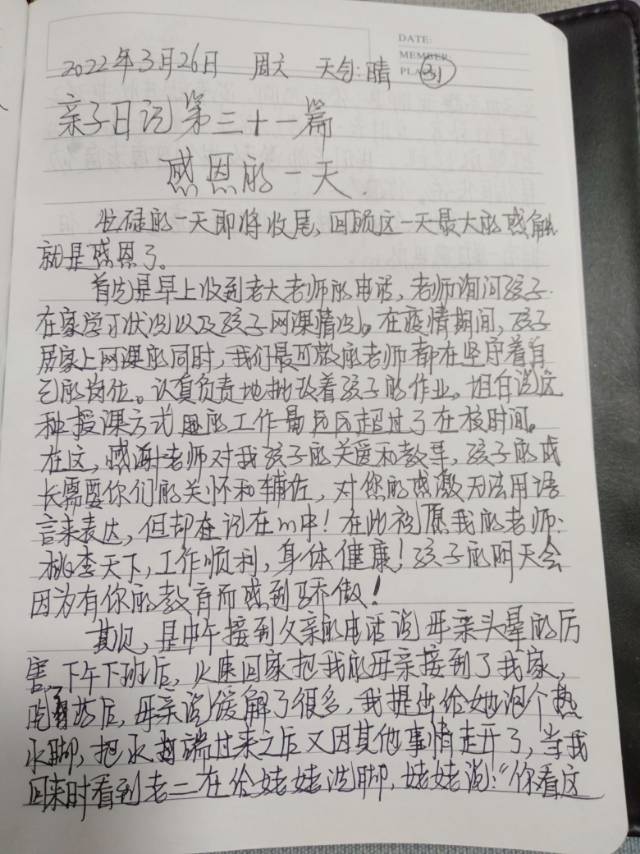 DATE:
MEMBER
PLA
2022年3月26日 周六 天气:晴 31
亲子日记第三十一篇
感恩的一天.
忙碌的一天即将收尾,回顾这一天最大的感触
就是感恩了。
首先是早上收到老大老师的电话,老师询问孩子
在家学习状况以及孩子网课情况。在疫情期间,孩子
居家上网课的同时,我们最可敬的老师都在坚守着自
己的岗位。认真负责地批改着孩子的作业。坦白说这
种授课方式 的工作量历历超过了在校时间。
在这,感谢老师对我孩子的关爱和教导,孩子的成
长需要你们的关怀和辅佐,对您的感激无法用语
言来表达,但却在记在心中!在此祝愿我的老师:
桃李天下,工作顺利,身体健康!孩子的明天会
因为有你的教育而感到骄傲!
其次,是中午接到父亲的电话说母亲头晕的厉
害,下午下班后,火速回家把我的母亲接到了我家,
吃了药后,母亲说缓解了很多,我提出给她泡个热
水脚,把水 端过来之后又因其他事情走开了,当我
回来时看到老二在给姥姥洗脚,姥姥说:“你看这